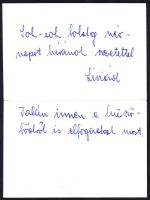 Sok-sok boldog név-
napot kívánok szeretettel
Líviás!
Talán innen a küszö-
bödről is elfogadod most